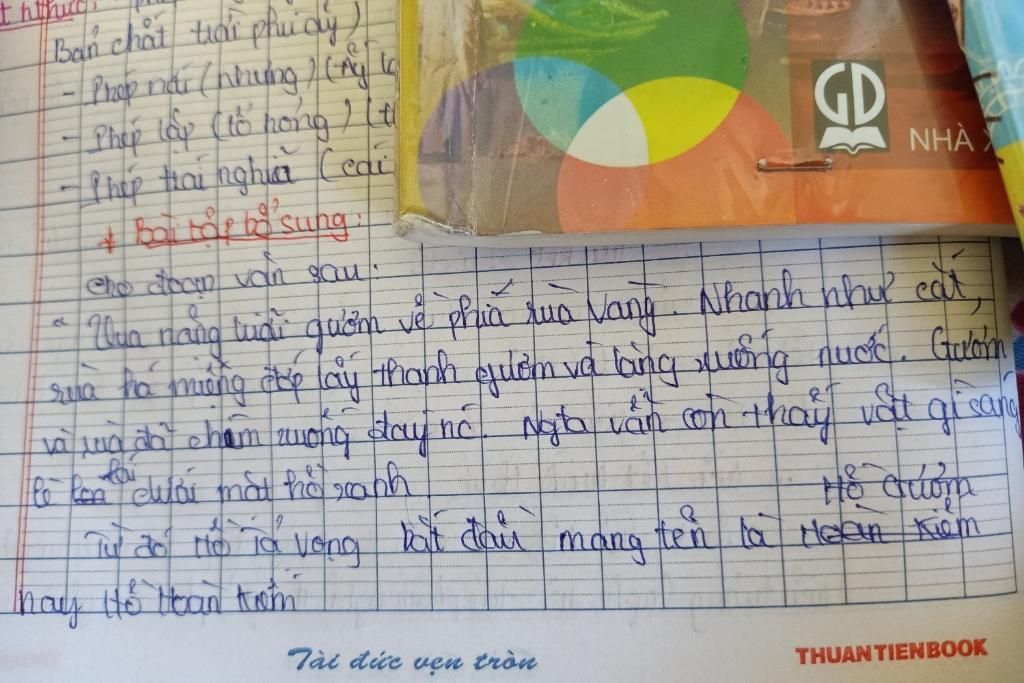 Bản chất trái phi cấy)
- Phép nối (nhưng) (
- Phép lặp (tố hỏng) (
- Phép trái nghĩa (cái
* Bài tập bổ sung:
cho đoạn văn sau:
" Vua nâng lưỡi gươm về phía rùa Vàng. Nhanh như cắt,
rùa há miệng đớp lấy thanh gươm và lặng xuống nước. Gươm
và rùa đã chìm xuống đáy nc. Ngta vẫn còn thấy vật gì sáng
lê lói dưới mặt hồ xanh
Hồ Gươm
Từ đó Hồ Tả vọng bắt đầu mang tên là Hoàn Kiếm
hay Hồ Hoàn Kiếm
GD
NHÀ
Tài đức vẹn tròn
THUANTIENBOOK